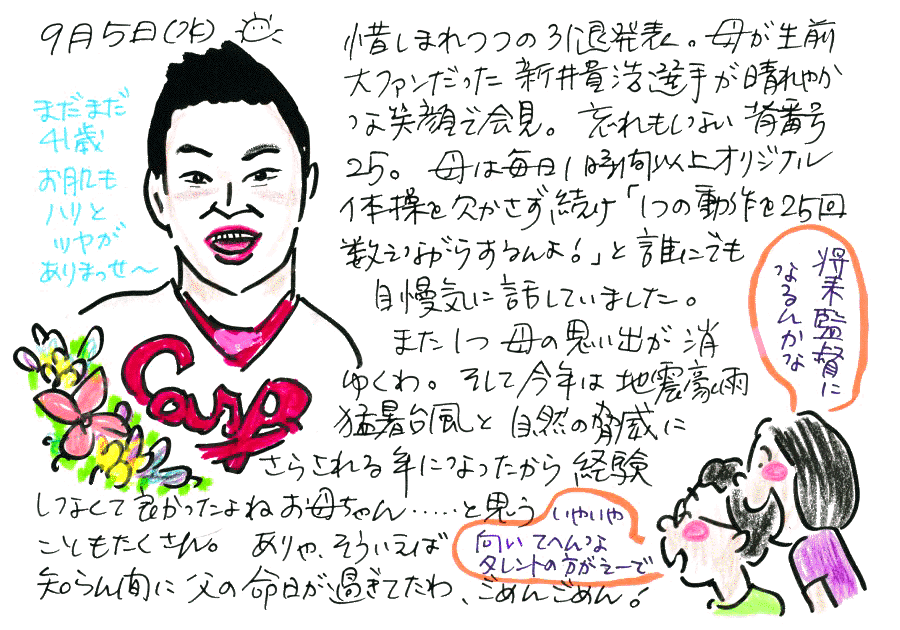 9月5日(水)
まだまだ
41歳
お肌も
ハリと
ツヤが
ありまっせ〜
惜しまれつつの引退発表。母が生前
大ファンだった新井貴浩選手が晴れやか
な笑顔で会見。忘れもしない背番号
25。母は毎日1時間以上オリジナル
体操を欠かさず続け「1つの動作を25回
数えながらするんよ!」と誰にでも
自慢気に話していました。
また1つ母の思い出が消
ゆくわ。そして今年は地震豪雨
猛暑台風と自然の脅威に
さらされる年になったから経験
しなくて良かったよねお母ちゃん……と思う
こともたくさん。ありゃ、そういえば
知らん間に父の命日が過ぎてたわ、ごめんごめん!
Carp
将来監督に
なるんかな
いやいや
向いてへんな
タレントの方がえーで